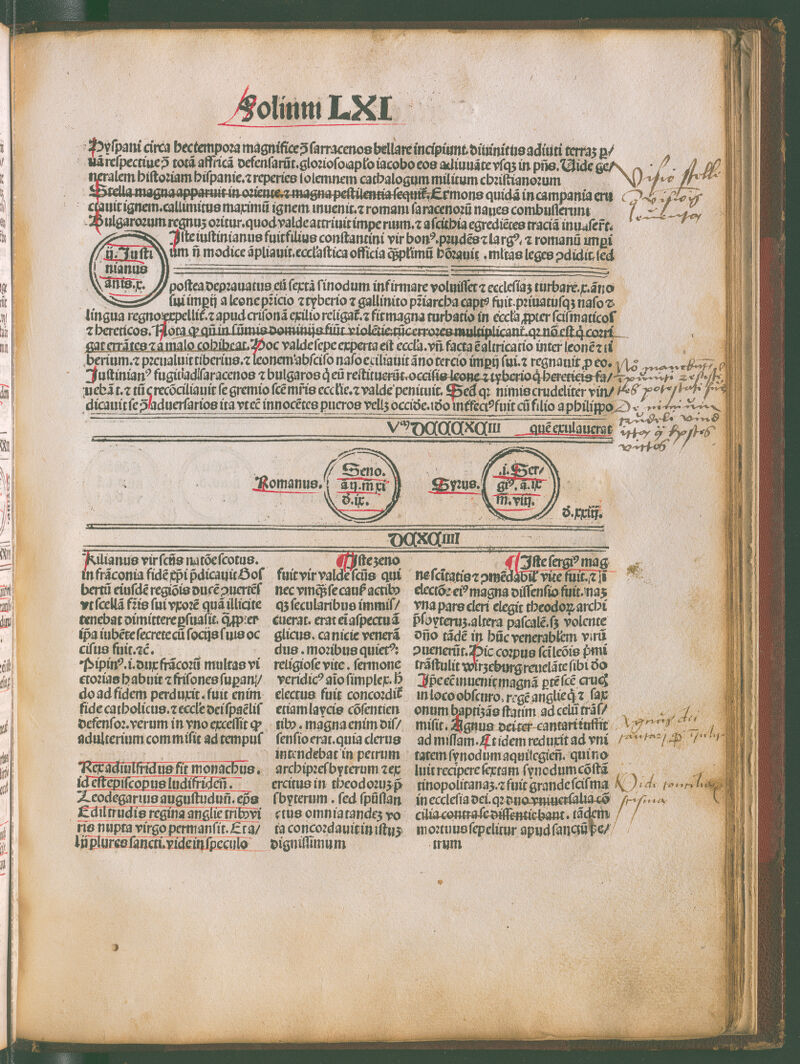 Folium LXI
Hyspani circa hec tempora magnifice ꝯ̃ sarracenos bellare incipiunt. diuinitus adiuti terras ꝑ/
uā respectiue ꝯ̃ totā affricā defensarūt. glorioso aplo iacobo eos adiuuāte vsqꝫ in pn̄s. Uide ge/
neralem historiam hispanie. ⁊ reperies solemnem cathalogum militum christianorum
Stella magna apparuit in oriente. ⁊ magna pestilentia sequit᷑. Et mons quidā in campania eru
ctauit ignem. callimitus maximū ignem inuenit. ⁊ romani saracenorū naues combusserunt
Bulgarorum regnuꝫ oritur. quod valde attriuit imperium. ⁊ a scithia egrediētes traciā inuaser̄t.
Iste iustinianus fuit filius constantini vir bonꝰ. prudēs ⁊ largꝰ. ⁊ romanū imꝑi
um nō modice āpliauit. ecclastica officia qꝫplimū hōrauit. mltas leges ꝯdidit. sed
ij. Justi
nianus
ānis. x.
postea deprauatus eū sextā sinodum infirmare voluisset ⁊ ecclesiaꝫ turbare. x. āno
sui imꝑij a leone pr̄icio ⁊ tyberio ⁊ gallinito pr̄iarcha captꝰ fuit. priuatusqꝫ naso ⁊
lingua regno expellit᷑. ⁊ apud crisonā exilio religat᷑. ⁊ fit magna turbatio in eccla ꝓpter scismaticos
⁊ hereticos. Nota ꝙ qn̄ in sūmis dominijs fiūt violētie. tūc errores multiplicant᷑. qꝛ nō est q̇ corri
gat errātes ⁊ a malo cohibeat. Hoc valde sepe experta est eccla. vn̄ facta ē altricatio inter leonē ⁊ ti
berium. ⁊ preualuit tiberius. ⁊ leonem absciso naso exiliauit āno tercio imꝑij sui. ⁊ regnauit ꝓ eo.
Justinianꝰ fugit ad saracenos ⁊ bulgaros q̇ eū restituerūt. occisis leone ⁊ tyberio q̇ hereticis fa/
uebāt. ⁊ tūc recōciliauit se gremio scē mr̄is ecclie. ⁊ valde penituit. Sed qꝛ nimis crudeliter vin/
dicauit se ꝯ̃ aduersarios ita vt eꝫ innocētes pueros vellꝫ occide. iō interfectꝰ fuit cū filio a philippo
Vᵐ DCCCCXCIII quē exulauerat
Romanus.
Seno.
ā. ij. m̄ xi
d. ix.
Syrus.
.i. Ser/
giꝰ. ā. ix
m̄. viij.
d. xxiij.
DCXCIIII
Kilianus vir scn̄s natōe scotus.
in frāconia fidē xp̄i p̄dicauit Gos
bertū eiusdē regiōis ducē ꝯuertēs
vt scellā fr̄is sui vxorē quā illicite
tenebat dimittere ꝑsuasit. qꝫꝓpter
ip̄a iubēte secrete cū socijs suis oc
cisus fuit. ⁊c̄.
Pipinꝰ. i. dux frācorū multas vi
ctorias habuit ⁊ frisones suꝑan/
do ad fidem perduxit. fuit enim
fide catholicus. ⁊ eccle dei spaēlis
defensor. verum in vno excessit ꝙ
adulterium commisit ad tempus
Rex adiulfridus fit monachus.
id est episcopus ludisfriden̄.
Leodegarius augustudun̄. ep̄s
Ediltrudis regina anglie tribꝰ vi
ris nupta virgo permansit. Et a/
lij plures sancti. vide in speculo
Iste zeno
fuit vir valde scn̄s qui
nec vmqꝫ se cauꝭ actibꝰ
qꝫ secularibus immis/
cuerat. erat ei aspectu ā
glicus. canicie venerā
dus. moribus quietꝰ.
religiose vite. sermone
veridicꝰ aīo simplex. h̄
electus fuit concordit᷑
etiam laycis cōsentien
tibꝰ. magna enim dis/
sensio erat. quia clerus
intendebat in petrum
archipresbyterum ⁊ ex
ercitus in theodoruꝫ p̄
sbyterum. sed spūssan
ctus omnia tandeꝫ vo
ta concordauit in istuꝫ
dignissimum
Iste sergiꝰ mag
ne scitatis ⁊ ꝯmēdabil᷑ vite fuit. ⁊ ī
electōe eiꝰ magna dissensio fuit. naꝫ
vna pars cleri elegit theodoꝝ archi
p̄sbyteruꝫ. altera pascalē. sꝫ volente
dn̄o tādē in hūc venerabilem virū
ꝯuenerūt. Hic corpus scī leōis pmī
trāstulit wirzeburg reuelāte sibi dō
Ip̄e eē inuenit magnā ꝑtē scē crucꝭ
in loco obscuro. regē anglie q̇ ⁊ sax
onum baptizās statim ad celū trās/
misit. Agnus dei ter cantari iussit
ad missam. Et idem reduxit ad vni
tatem synodum aquilegien̄. qui no
luit recipere sextam synodum cōstā
tinopolitanaꝫ. ⁊ fuit grande scisma
in ecclesia dei. qꝛ duo vniuersalia cō
cilia contra se dissentiebant. tādem
mortuus sepelitur apud sanctū pe/
trum
Visio stelle
Agnus dei